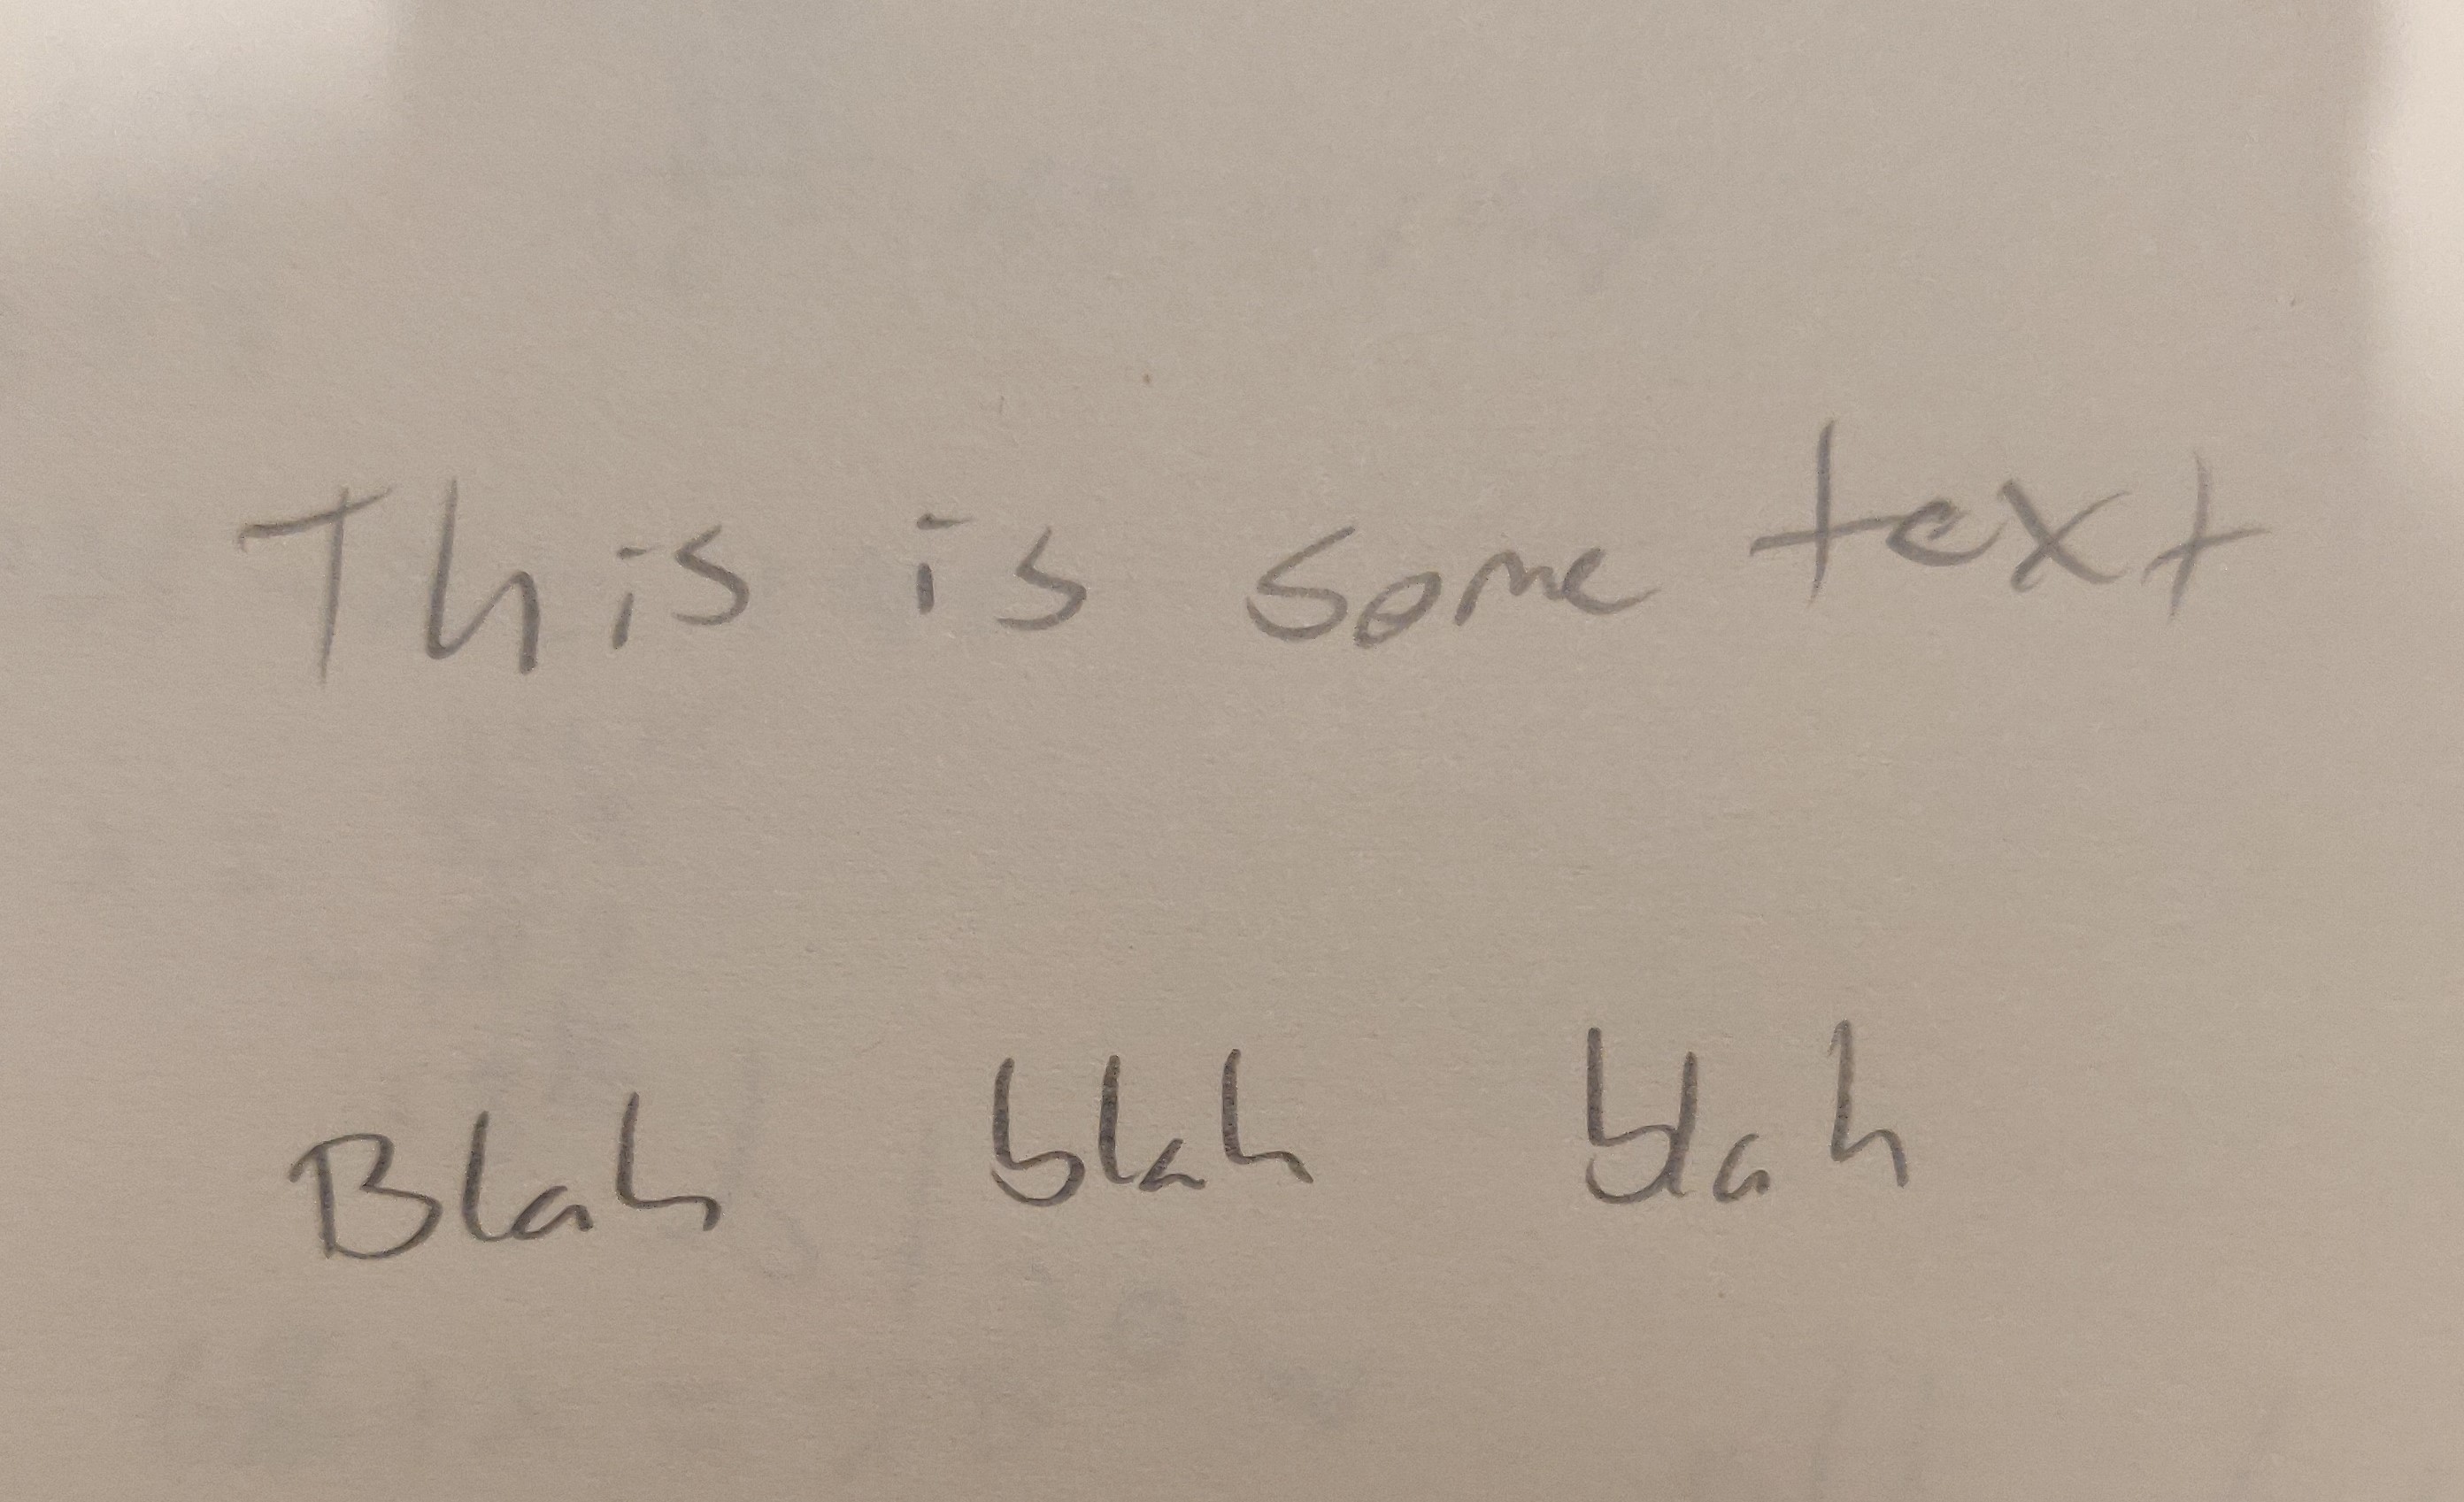 This is some text
Blah blah blah